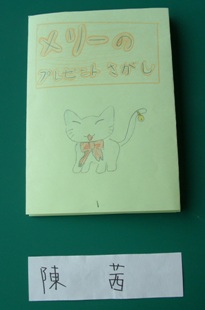 メリーの
プレゼントさがし
1
陳 茜